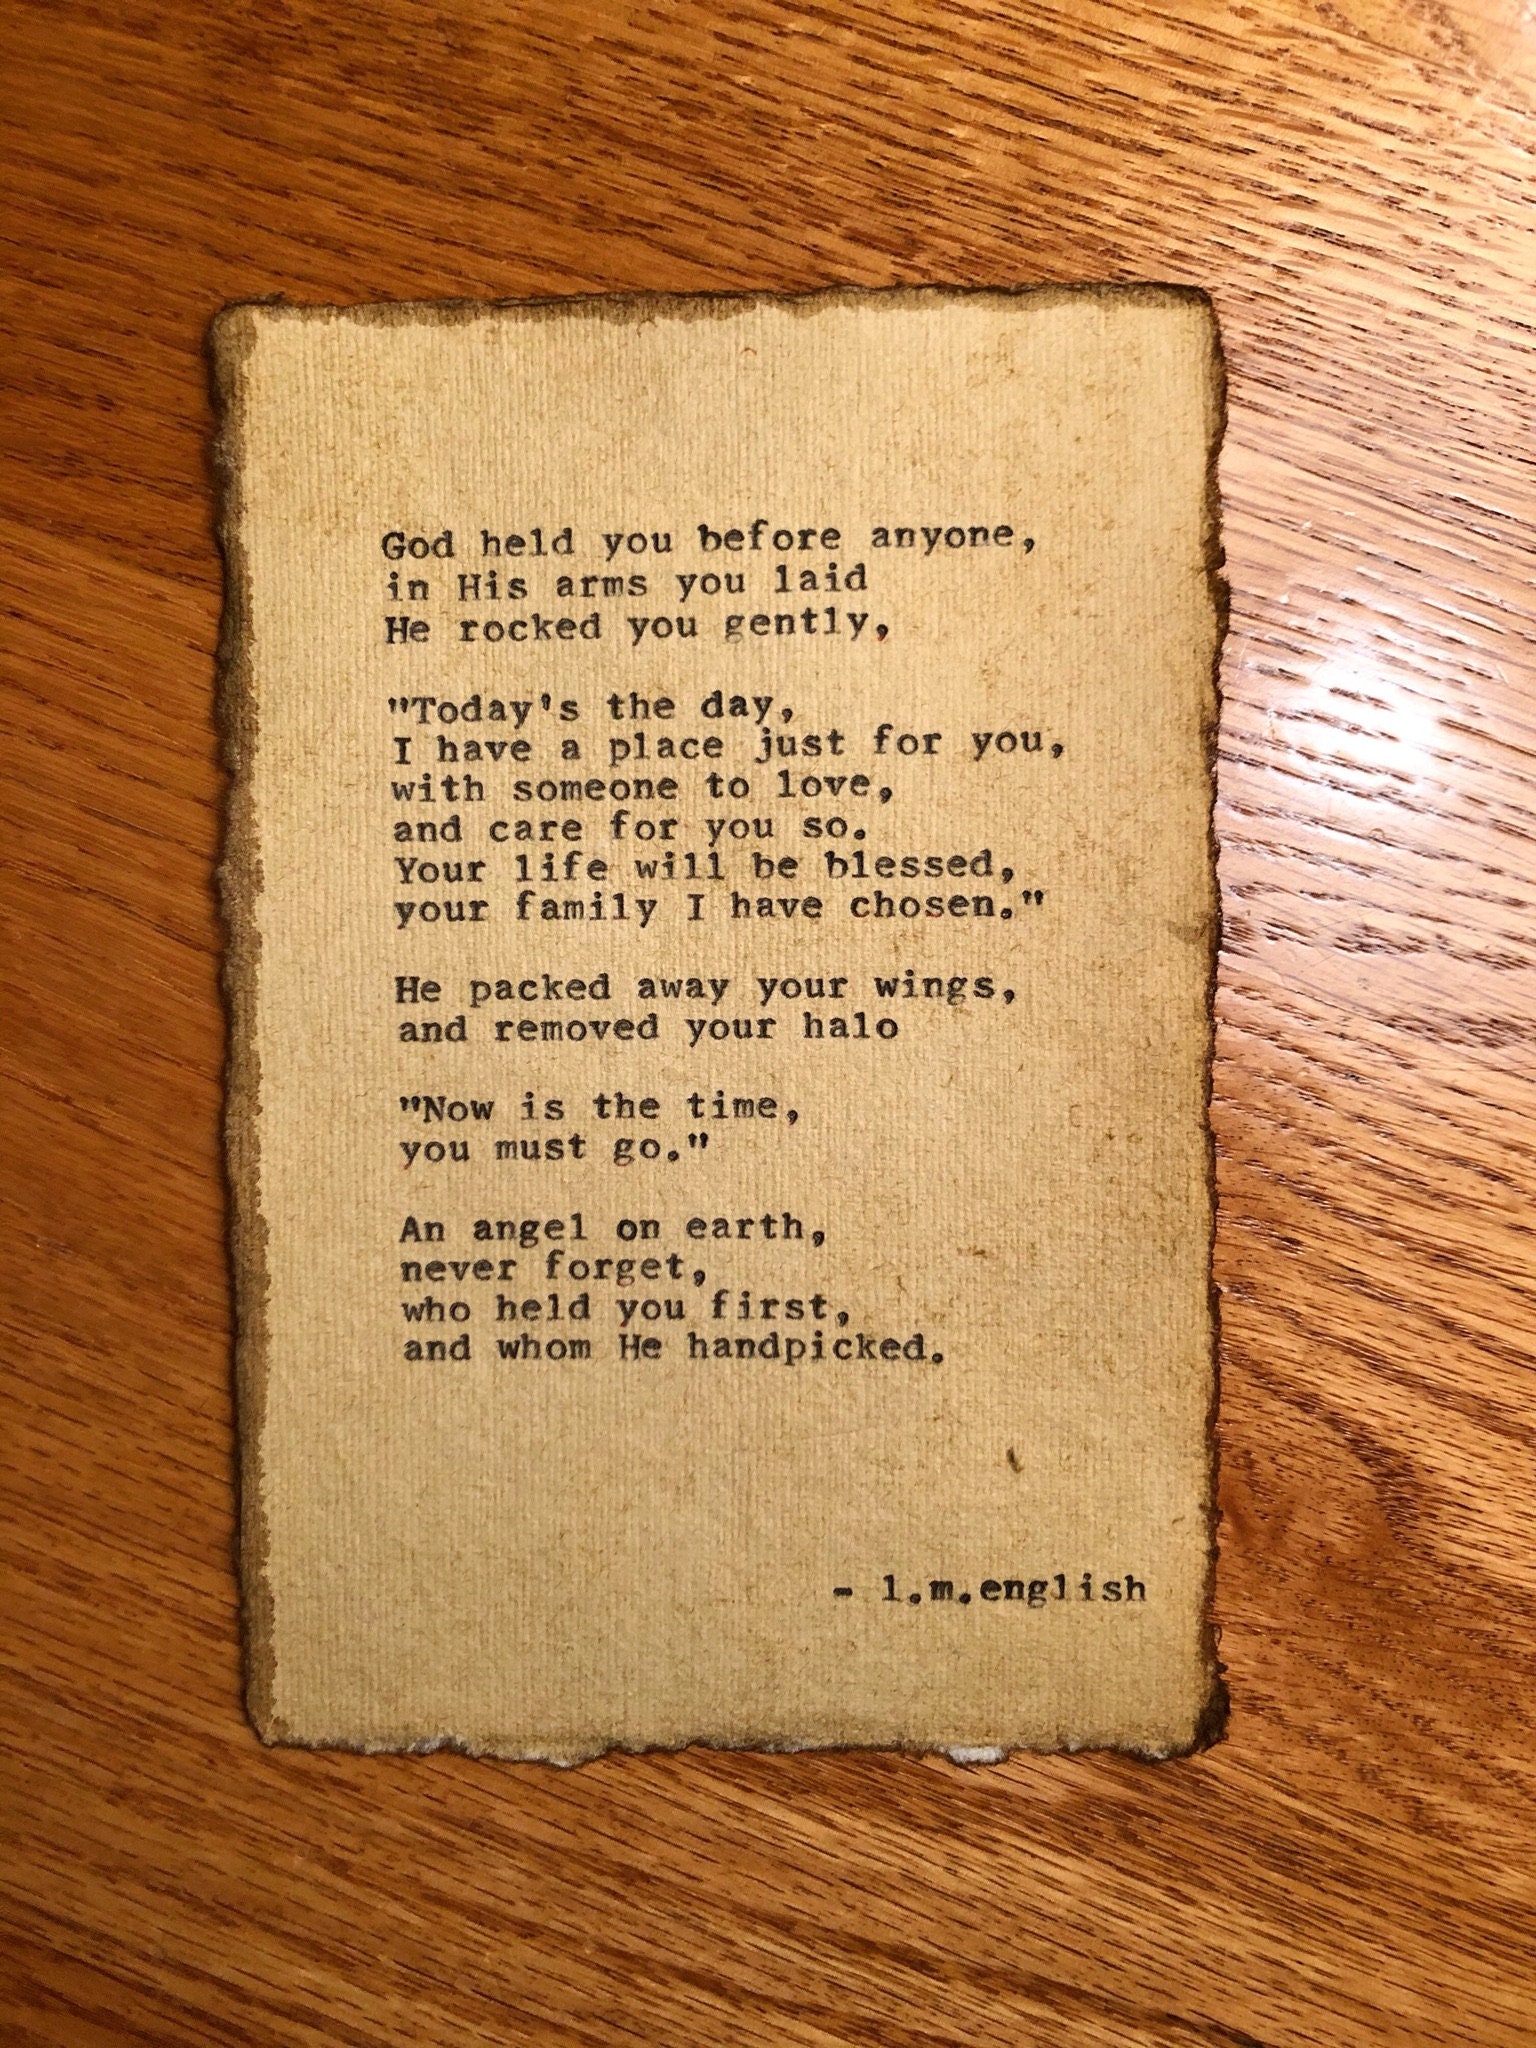 God held you before anyone,
in His arms you laid
He rocked you gently,
"Today's the day,
I have a place just for you,
with someone to love,
and care for you so.
Your life will be blessed,
your family I have chosen."
He packed away your wings,
and removed your halo
"Now is the time,
you must go."
An angel on earth,
never forget,
who held you first,
and whom He handpicked.
- l.m.english